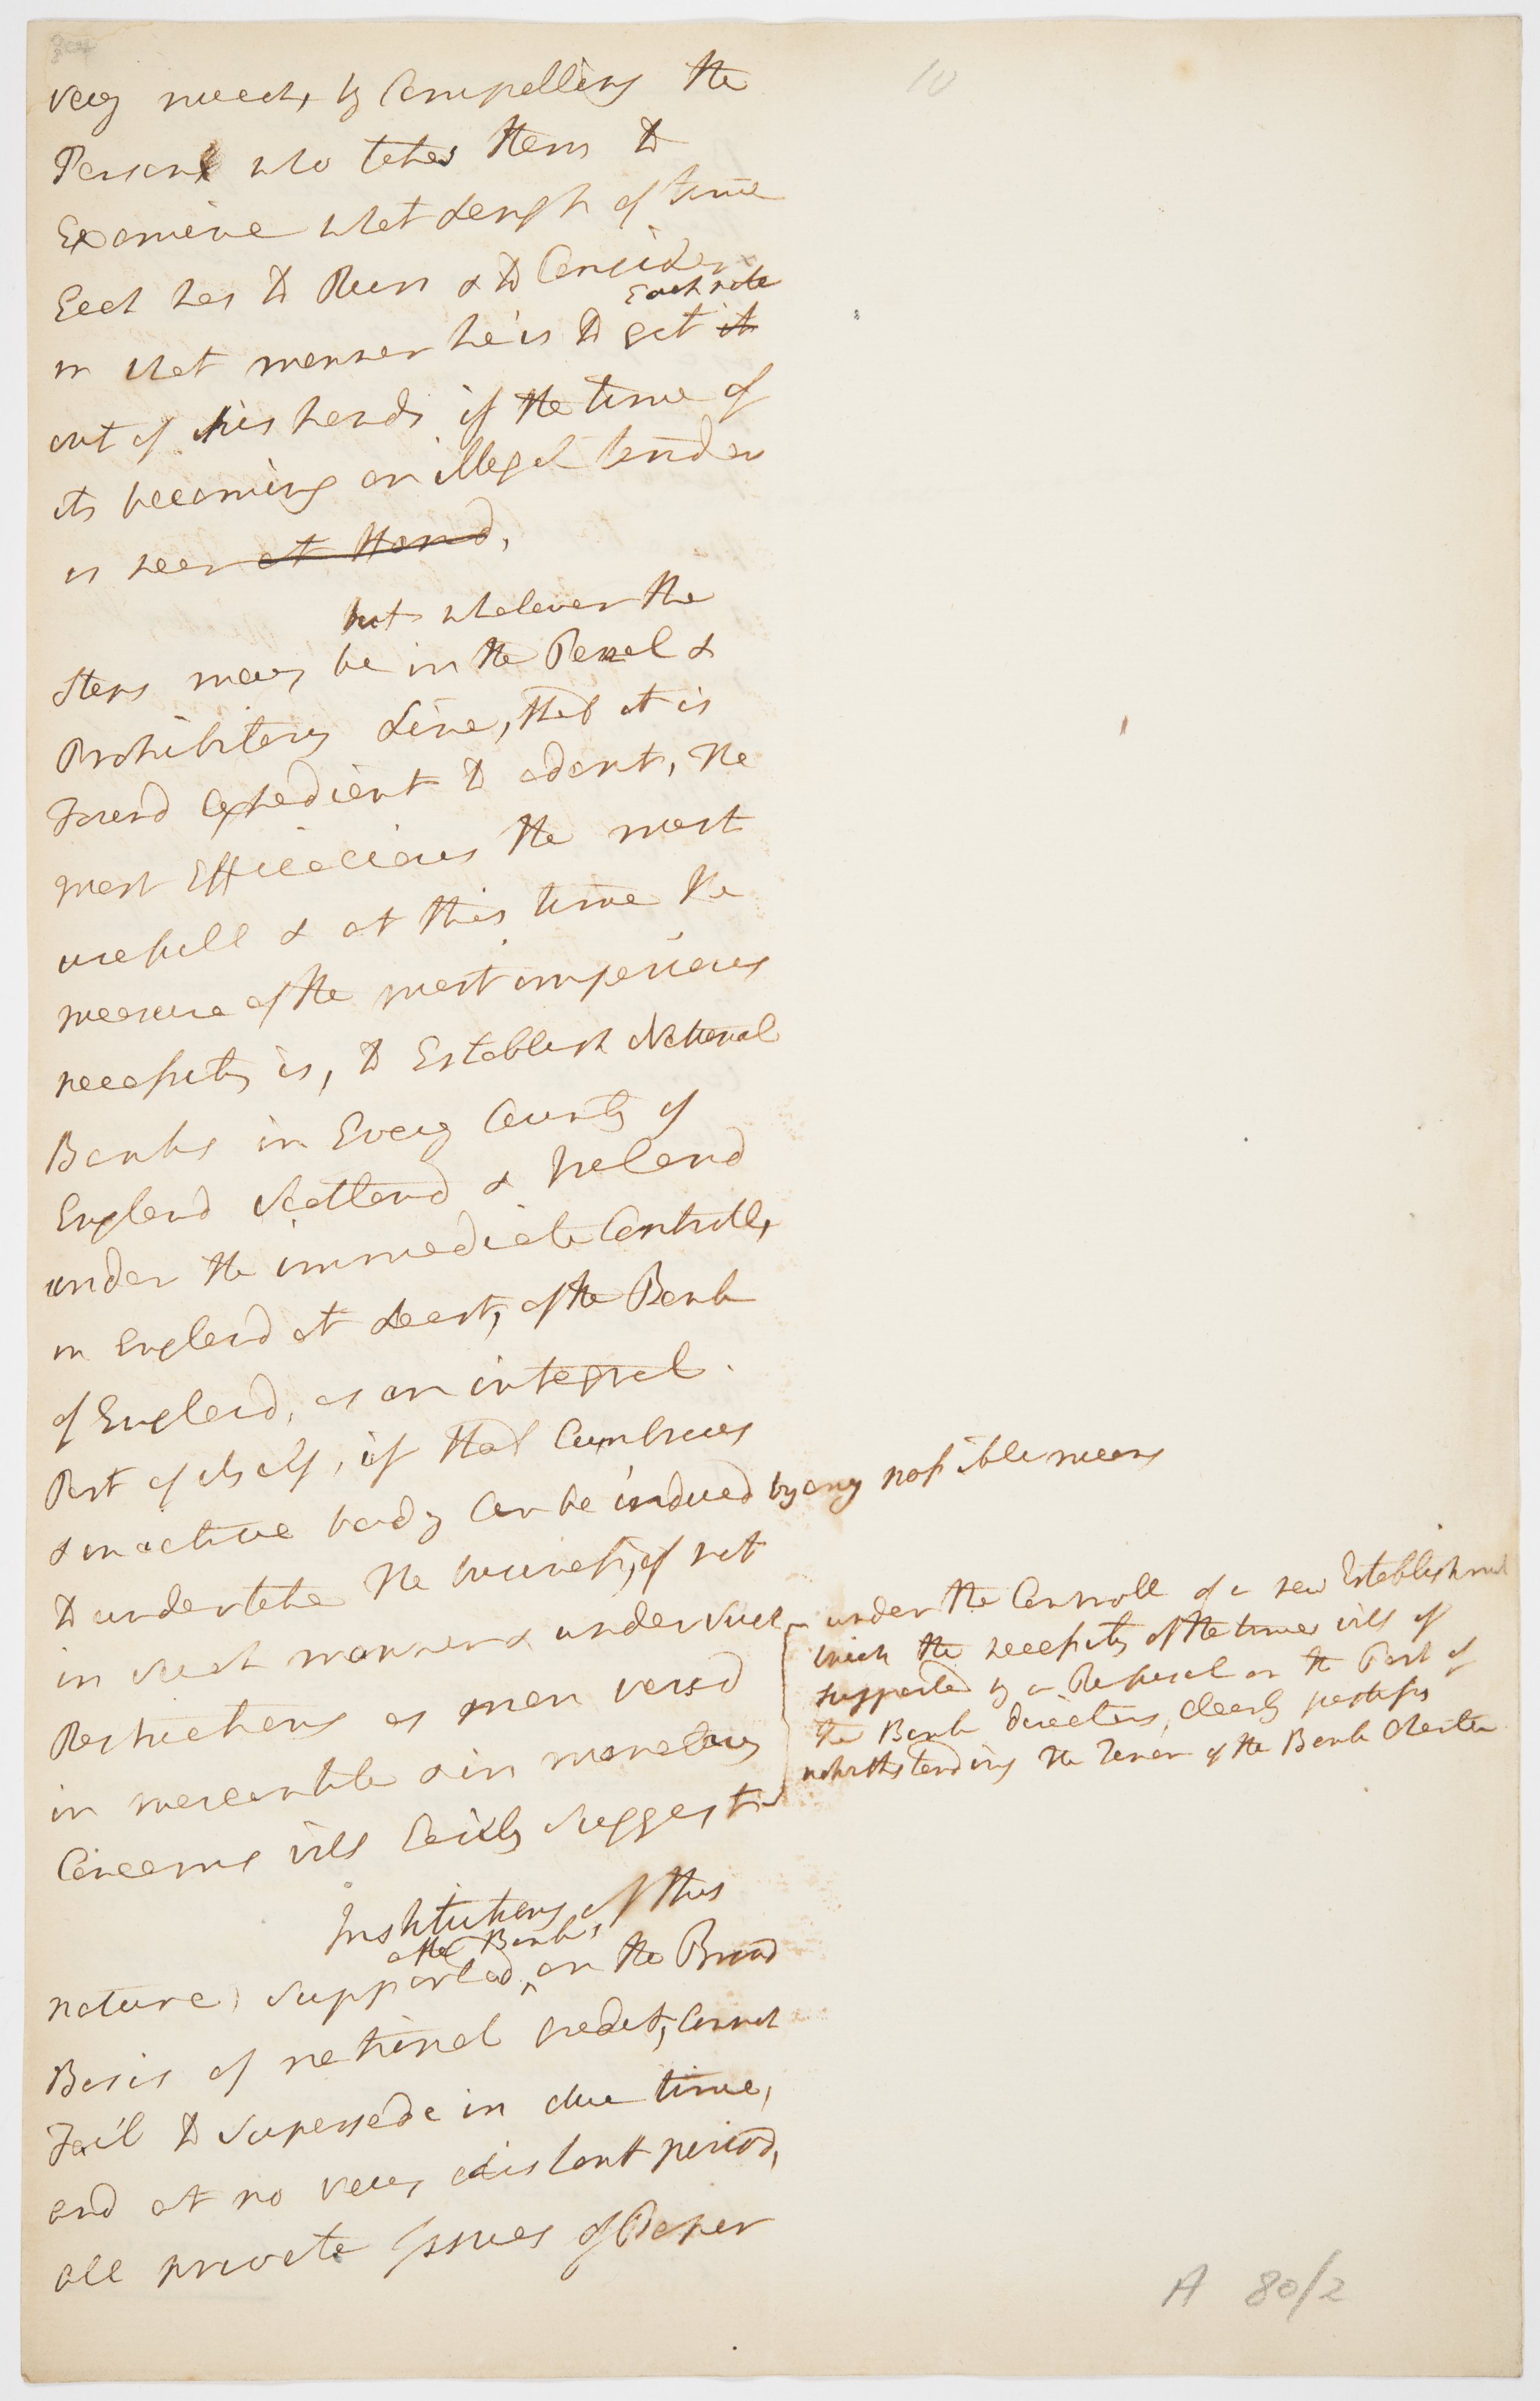 10
very much, by Compelling the
Person who takes them to
Examine what Length of time
Each has to Run & to Consider
Each note
in what manner he is to get it
out of his hands if the time of
its becoming an illegal tender
is near at Hand,
but whatever the
Steps may be in the Penal &
Prohibitory Line, that it is
Found Expedient to adopt, the
most Efficacious the most
usefull & at this time the
measure of the most imperious
necessity is, to Establish National
Banks in Every County of
England Scotland & Ireland
under the immediate Controll,
in England at Least, of the Bank
of England, as an integral
Part of itself, if that Cumbrous
& inactive body Can be induced by any possible means
to undertake the business, if not
in such manner & under such
Restrictions as men versd
in mercantile & in monetary
Concerns will Easily suggest
under the Controll of a new Establishment
which the necessity of the times will if
supported by a Refusal on the Part of
the Bank directors, Clearly justify
notwithstanding the Tenor of the Bank Charter
Institutions of this
as the Bank is
nature, supported, on the Broad
Basis of national credit, Cannot
Fail to Supersede in due time,
and at no very distant period,
all private Issues of Paper
A 80/2